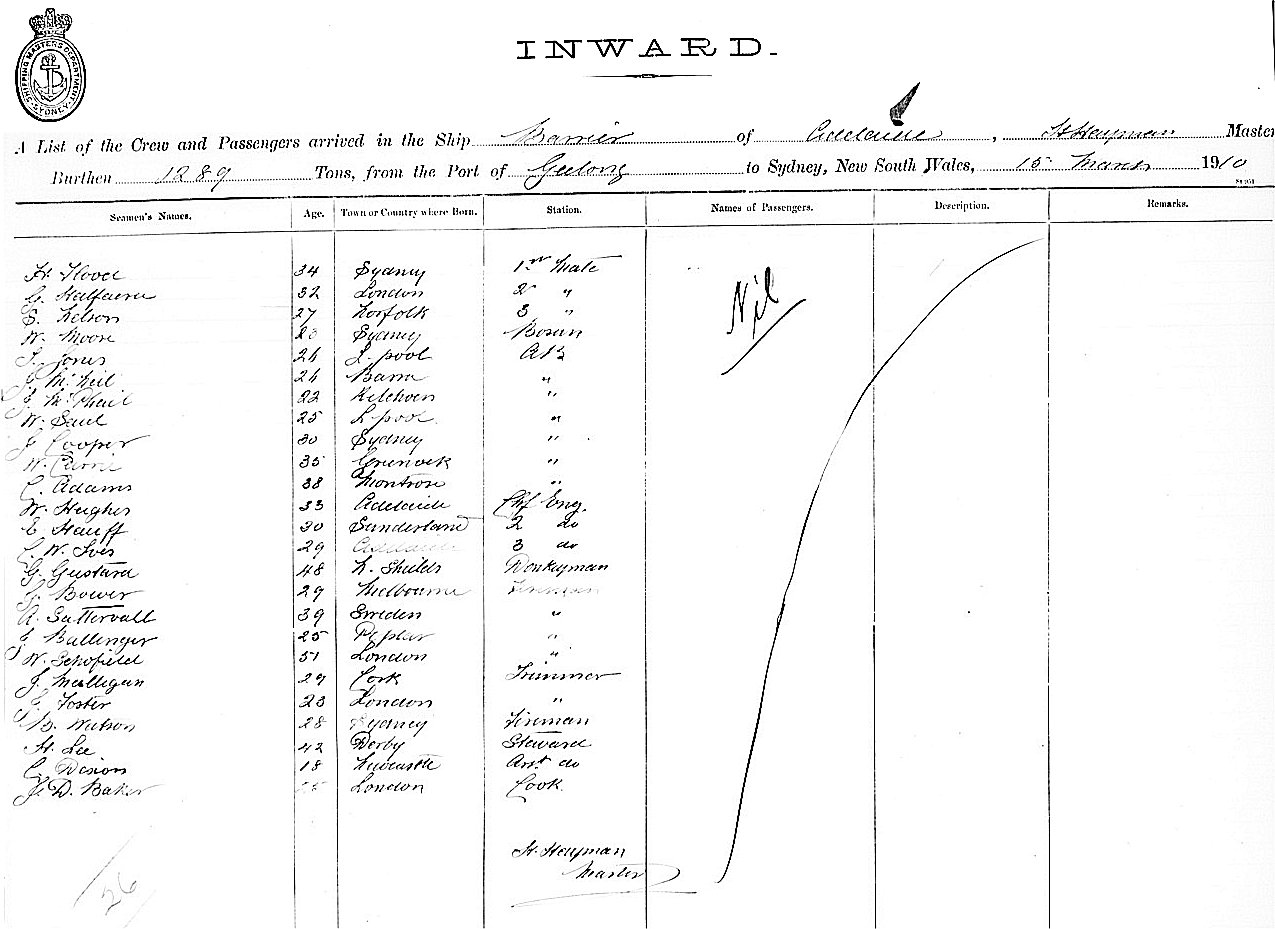 SHIPPING MASTERS DEPARTMENT
SYDNEY
INWARD.
A List of the Crew and Passengers arrived in the Ship Barrier of Adelaide, H Hayman Master
Burthen 1289 Tons, from the Port of Geelong to Sydney, New South Wales, 15 March 1910
Seamen's Names. Age. Town or Country where Born. Station. Names of Passengers. Description. Remarks.
Nil
34 Sydney 1st Mate
G. 32 London 2 "
S. Nelson 27 Norfolk 3 "
W. Moore Sydney Bosun
Jones 24 L. pool AB
McNeil 24 Barra "
McPhail 22 "
W. Saul 25 L pool "
J Cooper 30 Sydney "
W. Currie 35 Greenock "
C. Adams 38 Montrose "
W. Hughes 33 Adelaide Chf Eng.
E Hauff 30 Sunderland 2 do
C. W. Ives 29 Adelaide 3 do
G. Gustard 48 N. Shields Donkeyman
G. Bower 29 Melbourne Fireman
A. Suttervall 39 Sweden "
Ballinger 25 Poplar "
W. Schofield 51 London "
J. Mulligan 29 Cork Trimmer
Foster 23 London "
B. Watson 28 Sydney Fireman
H. Lee 42 Derby Steward
C. Dixon 18 Newcastle Asst do
J. D. Baker London Cook
H. Hayman
Master
26